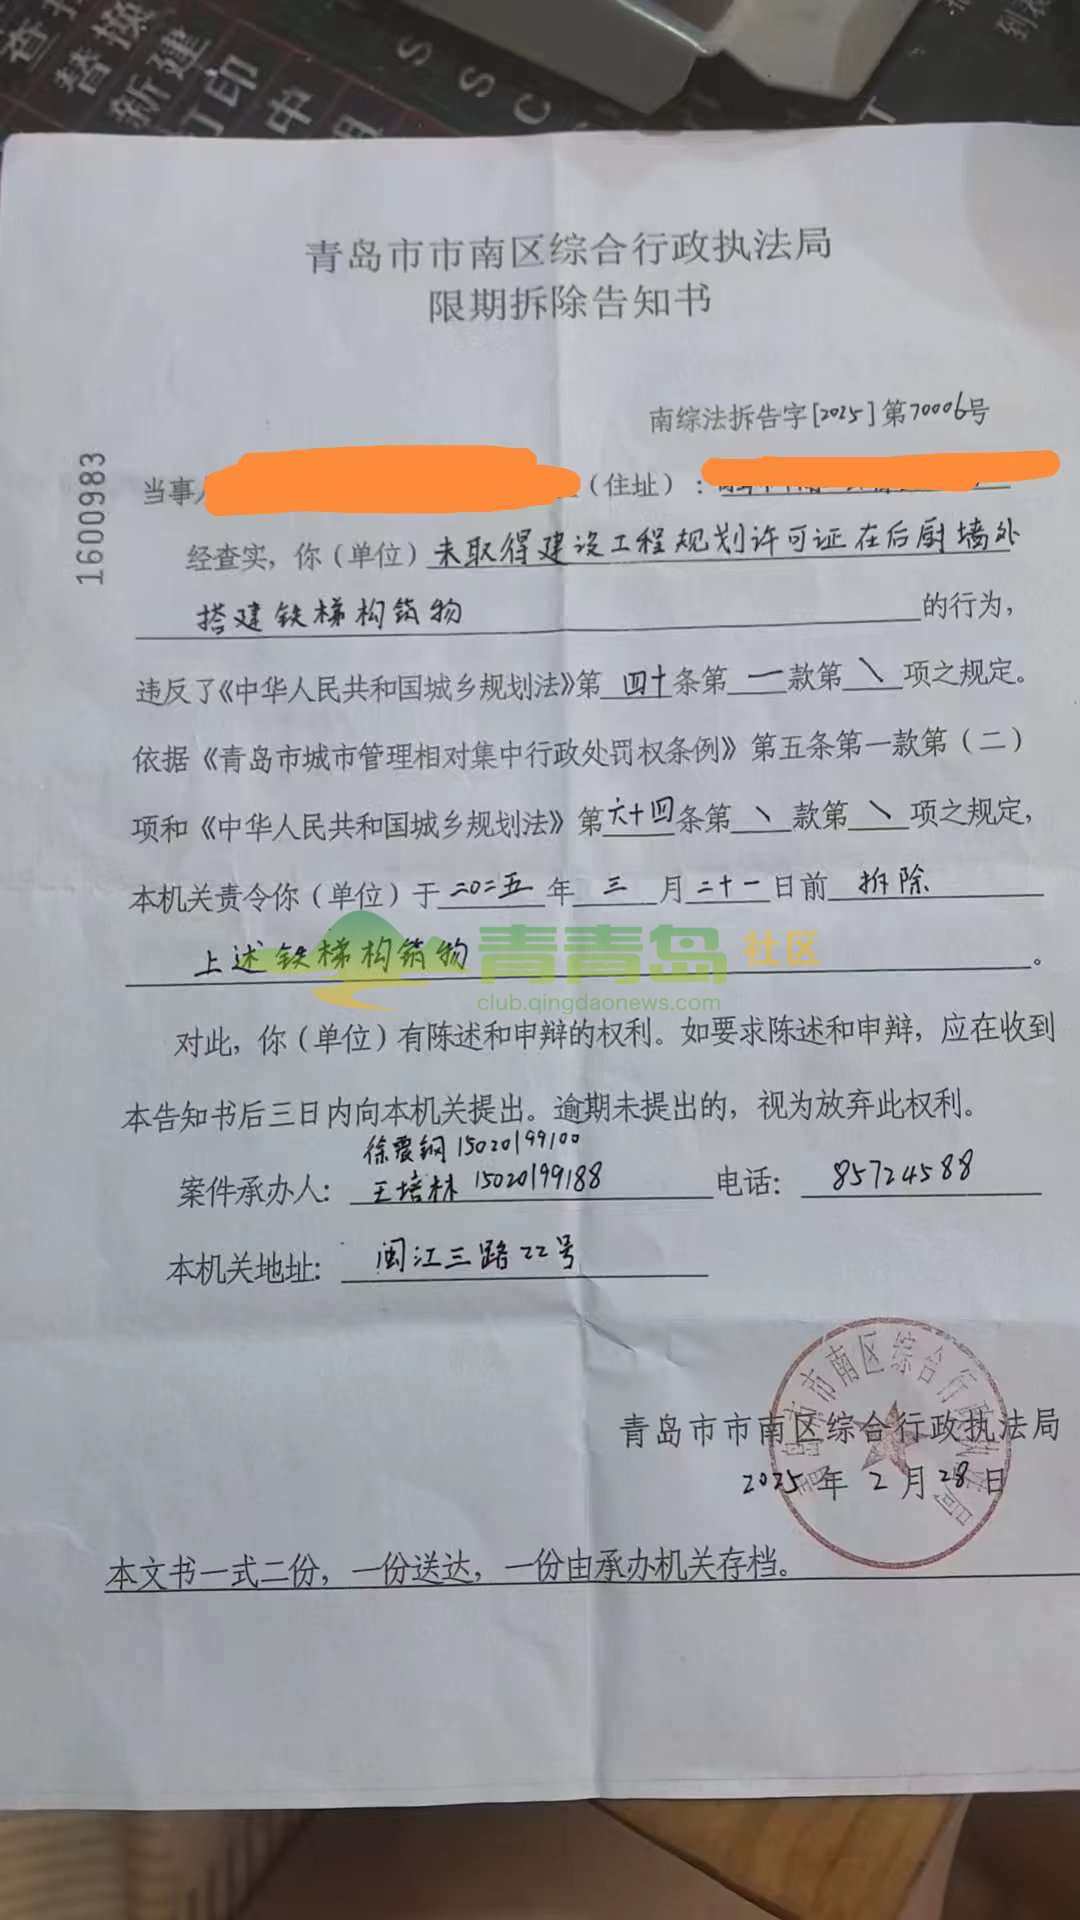 查找
替换
新建
打印
中
S
S
C
T
青岛市市南区综合行政执法局
限期拆除告知书
南综法拆告字[2025]第70006号
1600983
当事人
（住址）：
经查实，你（单位）未取得建设工程规划许可证在后厨墙处
搭建铁梯构筑物的行为，
违反了《中华人民共和国城乡规划法》第四十条第一款第\项之规定。
依据《青岛市城市管理相对集中行政处罚权条例》第五条第一款第（二）
项和《中华人民共和国城乡规划法》第六十四条第\款第\项之规定，
本机关责令你（单位）于二〇二五年三月二十一日前拆除
上述铁梯构筑物。
青青岛社区
club.qingdaonews.com
对此，你（单位）有陈述和申辩的权利。如要求陈述和申辩，应在收到
本告知书后三日内向本机关提出。逾期未提出的，视为放弃此权利。
徐震钢 15020199100
案件承办人：王培林 15020199188 电话：85724588
本机关地址：闽江三路22号
青岛市市南区综合行政执法局
青岛市市南区综合行政执法局
2025年2月28日
本文书一式二份，一份送达，一份由承办机关存档。